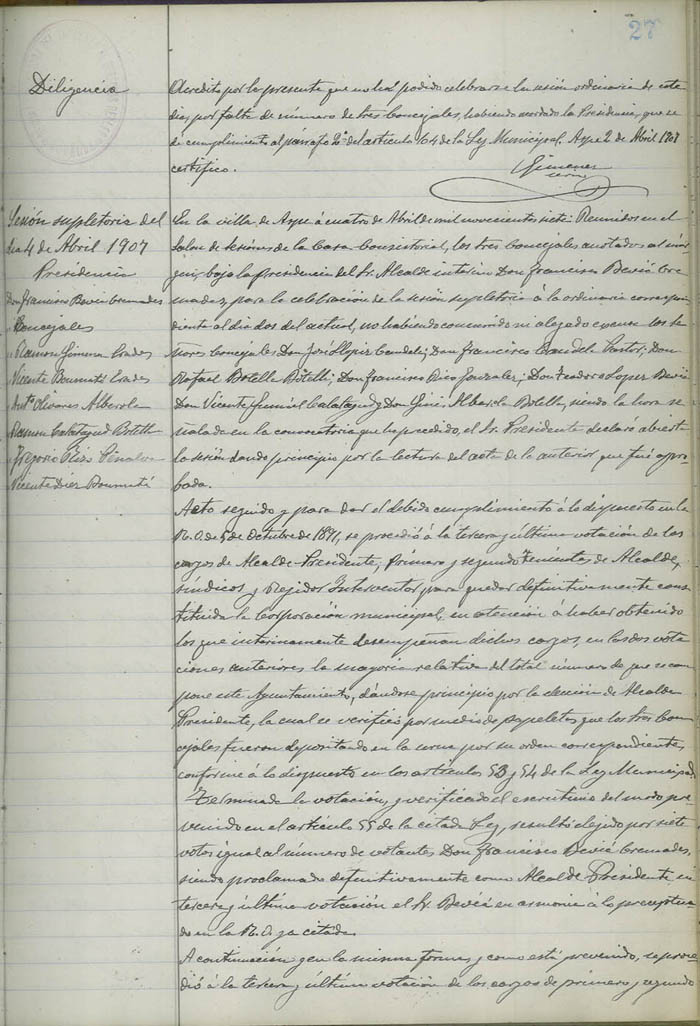 27
Diligencia
Acredito por la presente que no ha podido celebrarse la sesión ordinaria de este
dia, por falta de número de Sres Concejales, habiendo acordado la Presidencia, que se
de cumplimiento al párrafo 2º del articulo 104 de la Ley Municipal. Aspe 2 de Abril 1907
certifico.
Gimenez
Sesión supletoria del
dia 4 de Abril 1907
Presidencia
Don Francisco Bevià Cremades
Concejales
Ramon Gimenez Erades
Vicente Boumatí Erades
Antº Olivares Alberola
Ramon Calatayud Botella
Gregorio Rizo Peñalva
Vicente Diez Boumatí
En la villa de Aspe á cuatro de Abril de mil novecientos siete: Reunidos en el
Salon de sesiones de la Casa Consistorial, los Sres Concejales anotados al már-
gen, bajo la presidencia del Sr. Alcalde interino Don Francisco Bevià Cre-
mades, para la celebración de la sesión supletoria á la ordinaria correspon-
diente al dia dos del actual, no habiendo concurrido ni alegado excusa los Se-
ñores Concejales Don José Lopez Candela; Don Francisco Candela Pastor; Don
Rafael Botella Botella; Don Francisco Rico Gonzalez; Don Teodoro Lopez Bevià
Don Vicente Calatayud y Don Ginés Alberola Botella, siendo la hora se-
ñalada en la convocatoria que ha precedido, el Sr. Presidente declaró abierta
la sesión dando principio por la lectura del acta de la anterior que fué apro-
bada.
Acto seguido y para dar el debido cumplimiento á lo dispuesto en la
R. O. de 5 de Octubre de 1891, se procedió á la tercera y última votación de los
cargos de Alcalde Presidente, Primero y segundo Tenientes de Alcalde,
síndicos y Rejidor Interventor, para quedar definitivamente cons-
tituida la Corporación municipal, en atención á haber obtenido
los que interinamente desempeñan dichos cargos, en las dos vota-
ciones anteriores la mayoria relativa del total número de que se com-
pone este Ayuntamiento, dándose principio por la elección de Alcalde
Presidente, la cual se verificó por medio de papeletas que los Sres Con-
cejales fueron depositando en la urna por su orden correspondiente,
conforme á lo dispuesto en los articulos 53 y 54 de la Ley Municipal
Terminada la votación, y verificado el escrutinio del modo pre-
venido en el articulo 55 de la citada Ley, resultó elejido por siete
votos igual al número de votantes, Don Francisco Bevià Cremades,
siendo proclamado definitivamente como Alcalde Presidente en
tercera y última votación el Sr. Bevià en armonia á lo preceptua-
do en la R. O. ya citada.
A continuación y en la misma forma, y como está prevenido, se proce-
dió á la tercera y última votación de los cargos de primero y segundo